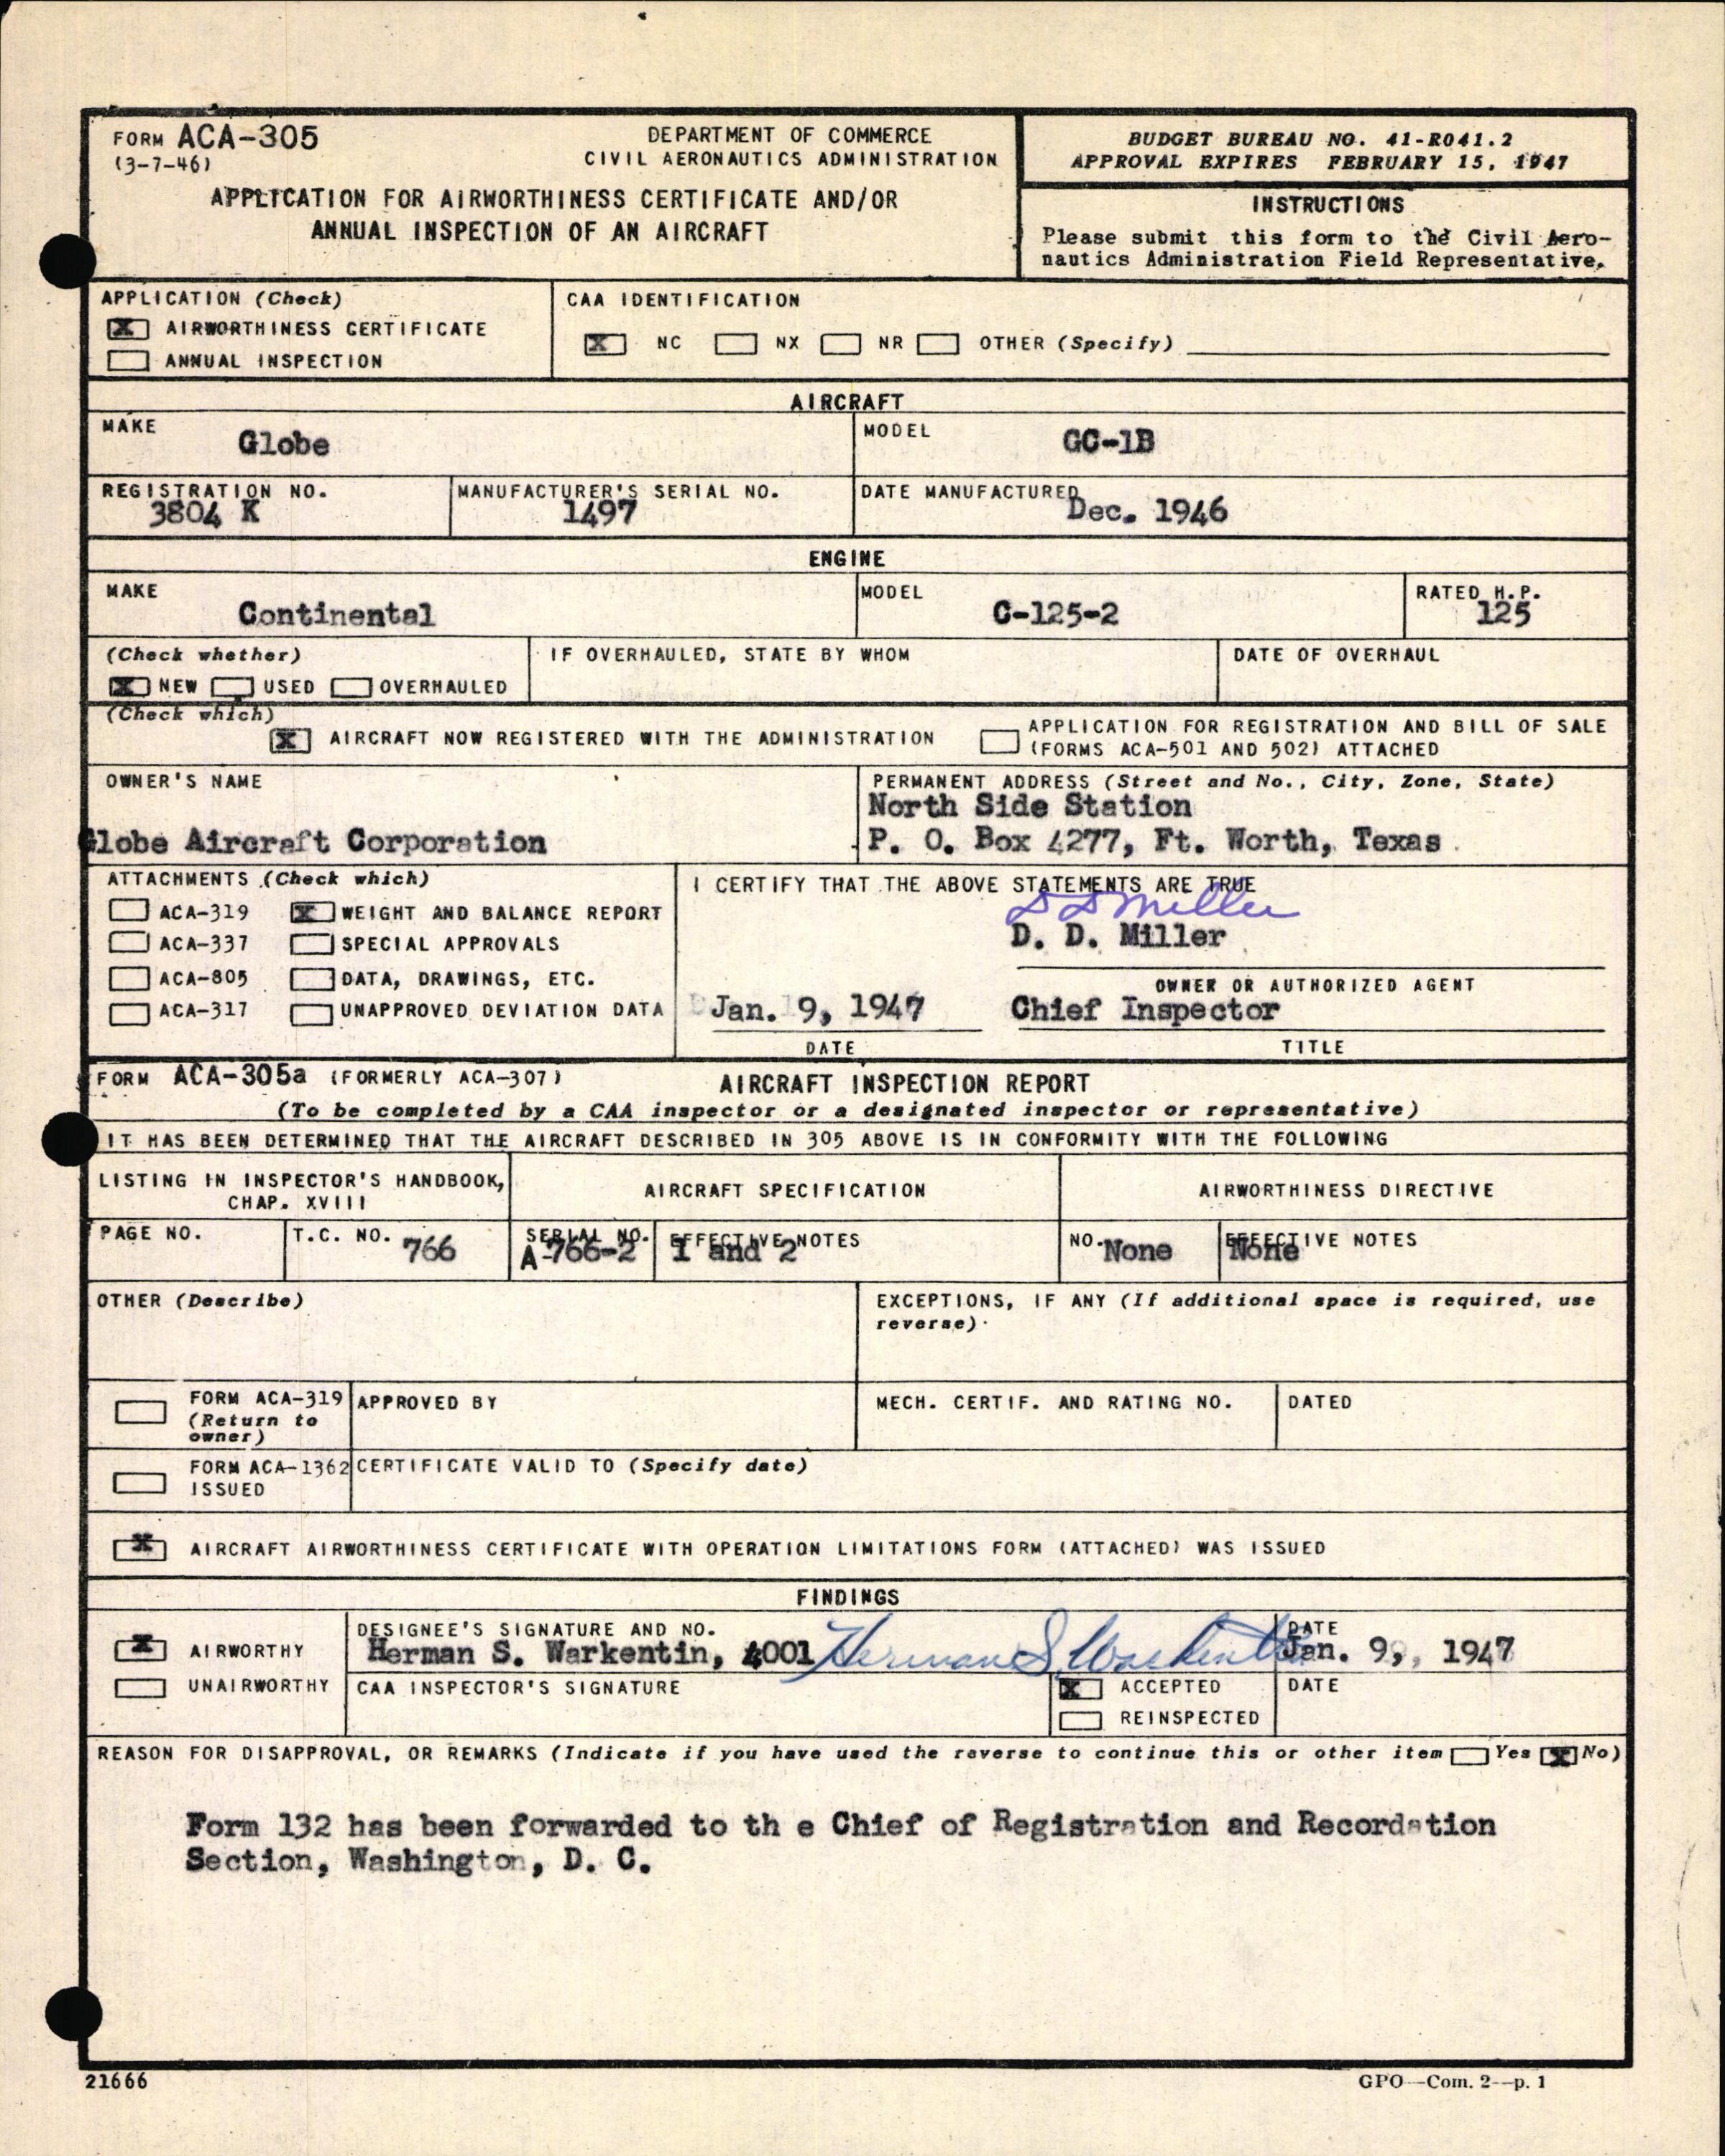 FORM ACA-305
(3-7-46)
DEPARTMENT OF COMMERCE
CIVIL AERONAUTICS ADMINISTRATION
APPLICATION FOR AIRWORTHINESS CERTIFICATE AND/OR
ANNUAL INSPECTION OF AN AIRCRAFT
BUDGET BUREAU NO. 41-R041.2
APPROVAL EXPIRES FEBRUARY 15, 1947
INSTRUCTIONS
Please submit this form to the Civil Aero-
nautics Administration Field Representative.
APPLICATION (Check)
X AIRWORTHINESS CERTIFICATE
ANNUAL INSPECTION
CAA IDENTIFICATION
X NC NX NR OTHER (Specify)
AIRCRAFT
MAKE
Globe
MODEL
GC-1B
REGISTRATION NO.
3804 K
MANUFACTURER'S SERIAL NO.
1497
DATE MANUFACTURED
Dec. 1946
ENGINE
MAKE
Continental
MODEL
C-125-2
RATED H.P.
125
(Check whether)
X NEW USED OVERHAULED
IF OVERHAULED, STATE BY WHOM
DATE OF OVERHAUL
(Check which)
X AIRCRAFT NOW REGISTERED WITH THE ADMINISTRATION
APPLICATION FOR REGISTRATION AND BILL OF SALE
(FORMS ACA-501 AND 502) ATTACHED
OWNER'S NAME
Globe Aircraft Corporation
PERMANENT ADDRESS (Street and No., City, Zone, State)
North Side Station
P. O. Box 4277, Ft. Worth, Texas
ATTACHMENTS (Check which)
ACA-319 X WEIGHT AND BALANCE REPORT
ACA-337 SPECIAL APPROVALS
ACA-805 DATA, DRAWINGS, ETC.
ACA-317 UNAPPROVED DEVIATION DATA
I CERTIFY THAT THE ABOVE STATEMENTS ARE TRUE
D D Miller
D. D. Miller
OWNER OR AUTHORIZED AGENT
Jan. 9, 1947 Chief Inspector
DATE TITLE
FORM ACA-305a (FORMERLY ACA-307) AIRCRAFT INSPECTION REPORT
(To be completed by a CAA inspector or a designated inspector or representative)
IT HAS BEEN DETERMINED THAT THE AIRCRAFT DESCRIBED IN 305 ABOVE IS IN CONFORMITY WITH THE FOLLOWING
LISTING IN INSPECTOR'S HANDBOOK,
CHAP. XVIII
AIRCRAFT SPECIFICATION
AIRWORTHINESS DIRECTIVE
PAGE NO.
T.C. NO. 766
SERIAL NO.
A-766-2
EFFECTIVE NOTES
1 and 2
NO. None
EFFECTIVE NOTES
None
OTHER (Describe)
EXCEPTIONS, IF ANY (If additional space is required, use
reverse)
FORM ACA-319
(Return to
owner)
APPROVED BY
MECH. CERTIF. AND RATING NO.
DATED
FORM ACA-1362
ISSUED
CERTIFICATE VALID TO (Specify date)
X AIRCRAFT AIRWORTHINESS CERTIFICATE WITH OPERATION LIMITATIONS FORM (ATTACHED) WAS ISSUED
FINDINGS
X AIRWORTHY
UNAIRWORTHY
DESIGNEE'S SIGNATURE AND NO.
Herman S. Warkentin, 4001 Herman S. Warkentin
DATE
Jan. 9, , 1947
CAA INSPECTOR'S SIGNATURE
X ACCEPTED
REINSPECTED
DATE
REASON FOR DISAPPROVAL, OR REMARKS (Indicate if you have used the reverse to continue this or other item Yes X No)
Form 132 has been forwarded to th e Chief of Registration and Recordation
Section, Washington, D. C.
21666
GPO—Com. 2—p. 1